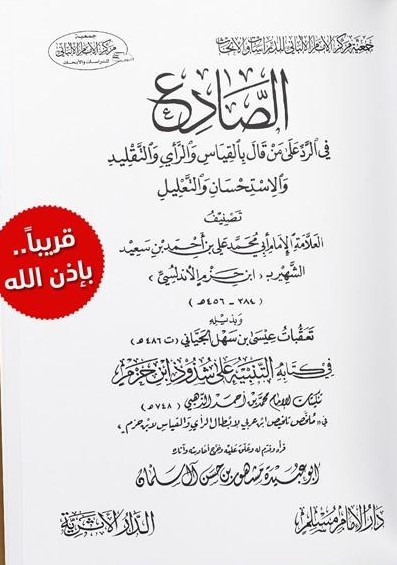 جمعية مركز الإمام الألباني للدراسات والأبحاث
جمعية
مركز الإمام الألباني
للدراسات والأبحاث
الصَّادِع
في الرَّدِّ عَلَى مَنْ قَالَ بِالْقِيَاسِ وَالرَّأْيِ وَالتَّقْلِيدِ
وَالِاسْتِحْسَانِ وَالتَّعْلِيلِ
تَصْنِيفُ
العَلَّامَةِ الإِمَامِ أَبِي مُحَمَّدٍ عَلِيِّ بْنِ أَحْمَدَ بْنِ سَعِيدٍ
الشَّهِيرِ بِـ ( ابْنِ حَزْمٍ الأَنْدَلُسِيِّ )
( ٣٨٤ - ٤٥٦هـ )
وَبِذَيْلِهِ
تَعَقُّبَاتُ عِيسَى بْنِ سَهْلٍ الجَيَّانِي (ت ٤٨٦هـ)
فِي كِتَابِهِ التَّنْبِيهُ عَلَى شُذُوذِ ابْنِ حَزْمٍ
تنكيتات الإمام محمد بن أحمد الذهبي (٧٤٨هـ)
في «ملخص تلخيص ابن عربي لإبطال الرأي والقياس لابن حزم»
قرأه وقدم له وعلق عليه وخرج أحاديثه وآثاره
أبو عبيدة مشهور بن حسن آل سلمان
دار الإمام مسلم
الدار الأثرية
قريباً..
بإذن الله